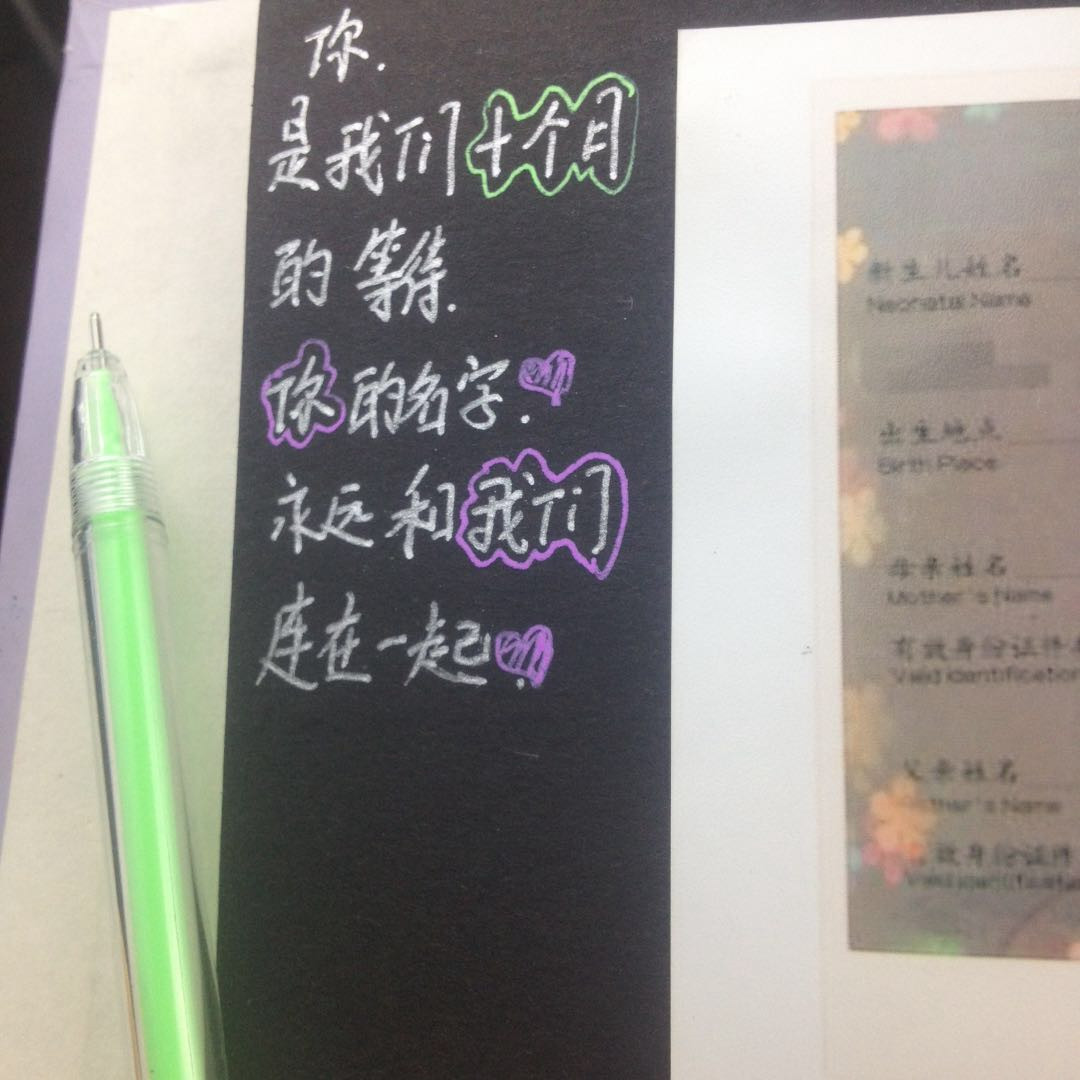 你.
是我们十个月
的等待.
你的名字.
永远和我们
连在一起.
新生儿姓名
Neonate's Name
出生地点
Birth Place
母亲姓名
Mother's Name
有效身份证件
Valid Identification
父亲姓名
Father's Name
有效身份证件
Valid Identification